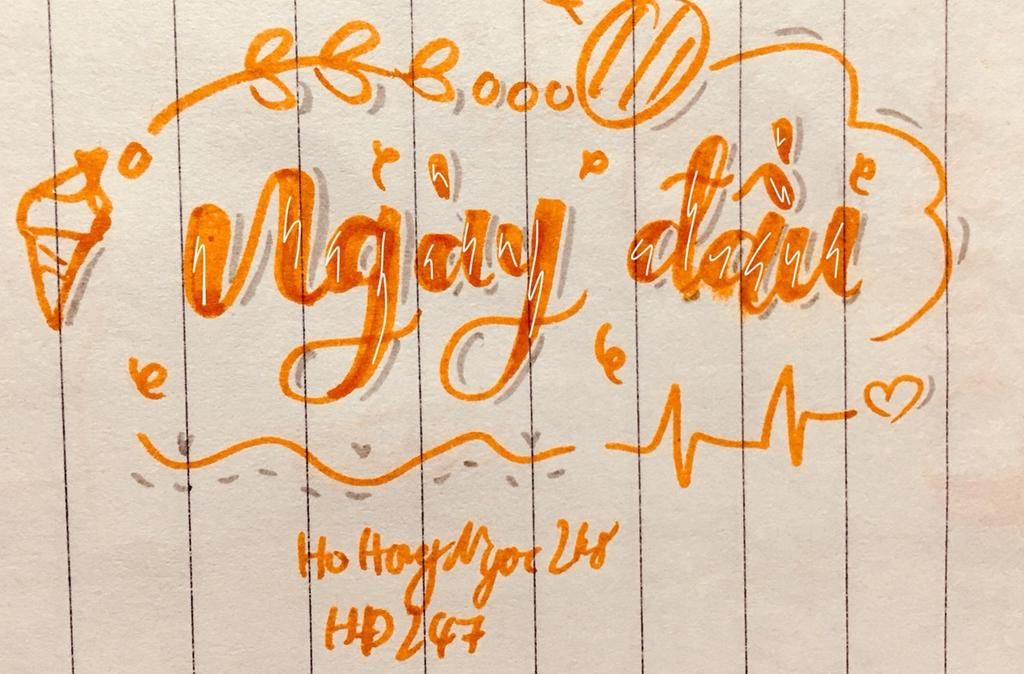 Ngày đầu
Ho Hong Ngoc
HD 247